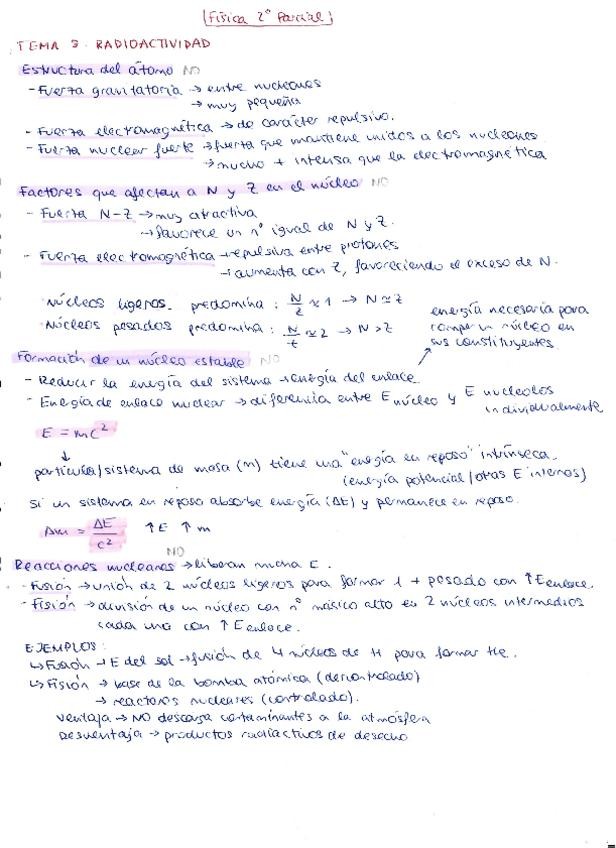 (Física 2º Parcial)
TEMA 3. RADIOACTIVIDAD
Estructura del átomo NO
- Fuerza gravitatoria → entre nucleones
→ muy pequeña
- Fuerza electromagnética → de carácter repulsivo.
- Fuerza nuclear fuerte → fuerza que mantiene unidos a los nucleones
→ mucho + intensa que la electromagnética
Factores que afectan a N y Z en el núcleo NO
- Fuerza N-Z → muy atractiva
→ favorece un nº igual de N y Z.
- Fuerza electromagnética → repulsiva entre protones
→ aumenta con Z, favoreciendo el exceso de N.
Núcleos ligeros. predomina: N/Z ≈ 1 → N ≃ Z
Núcleos pesados predomina: N/Z ≈ 2 → N > Z
energía necesaria para
romper un núcleo en
sus constituyentes
Formación de un núcleo estable NO
- Reducir la energía del sistema → energía del enlace.
- Energía de enlace nuclear → diferencia entre E núcleo y E nucleolos
individualmente
E = mc²
↓
partícula/sistema de masa (m) tiene una "energía en reposo" intrínseca.
(energía potencial/otras E internas)
Si un sistema en reposo absorbe energía (ΔE) y permanece en reposo.
Δm = ΔE/c² ↑E ↑m
Reacciones nucleares NO → liberan mucha E.
- Fusión → unión de 2 núcleos ligeros para formar 1 + pesado con ↑E enlace.
- Fisión → división de un núcleo con nº másico alto en 2 núcleos intermedios
cada uno con ↑E enlace.
EJEMPLOS:
↳ Fusión → E del sol → fusión de 4 núcleos de H para formar He.
↳ Fisión → base de la bomba atómica (descontrolado)
→ reactores nucleares (controlado).
Ventaja → NO descarga contaminantes a la atmósfera
Desventaja → productos radiactivos de desecho